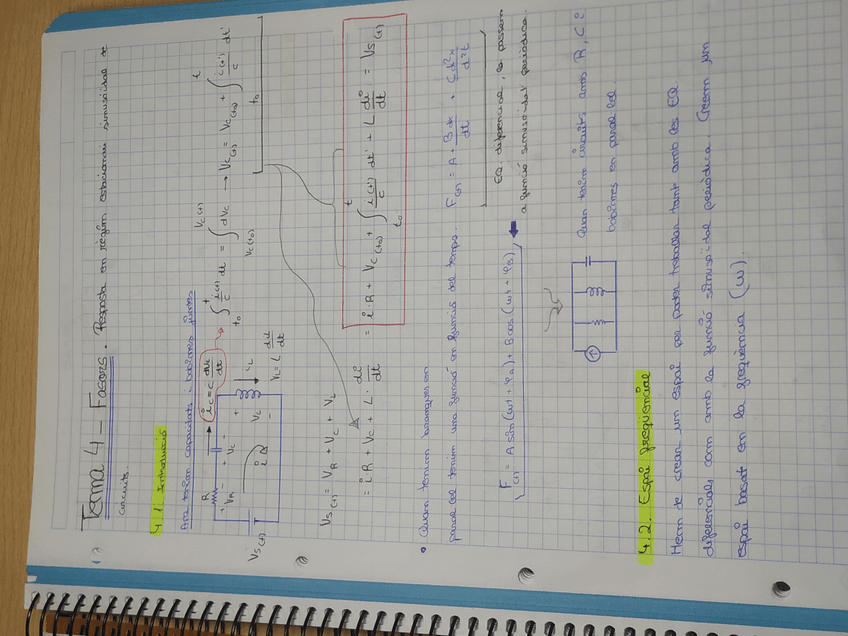 Tema 4 – Fasors. Resposta en règim estacionari sinusoidal de
circuits.
4.1. Introducció
Ara tenim capacitats i bobines juntes
R
i_C = C dV_C/dt → ∫_{t_0}^{t} i(t')/C dt = ∫_{V_C(t_0)}^{V_C(t)} dV_C → V_C(t) = V_C(t_0) + ∫_{t_0}^{t} i(t')/C dt'
+ V_R - + V_C -
i_L
V_S(t)
V_L = L di/dt
V_S(t) = V_R + V_C + V_L
= i R + V_C + L · di/dt = i R + V_C(t_0) + ∫_{t_0}^{t} i(t')/C dt' + L di/dt = V_S(t)
• Quan tenim
paral·lel tenim una funció en funció del temps. F(t) = A + B dx/dt + C d²x/d²t
EQ diferencial, la passem
a funció sinusoidal periòdica.
F(t) = A sin(wt + φ_A) + B cos(wt + φ_B)
Quan tenim circuits amb R, C i
bobines en paral·lel.
4.2. Espai freqüencial
Hem de crear un espai per poder treballar tant amb les EQ
diferencials com amb la funció sinusoidal periòdica. Creem un
espai basat en la freqüència (w).